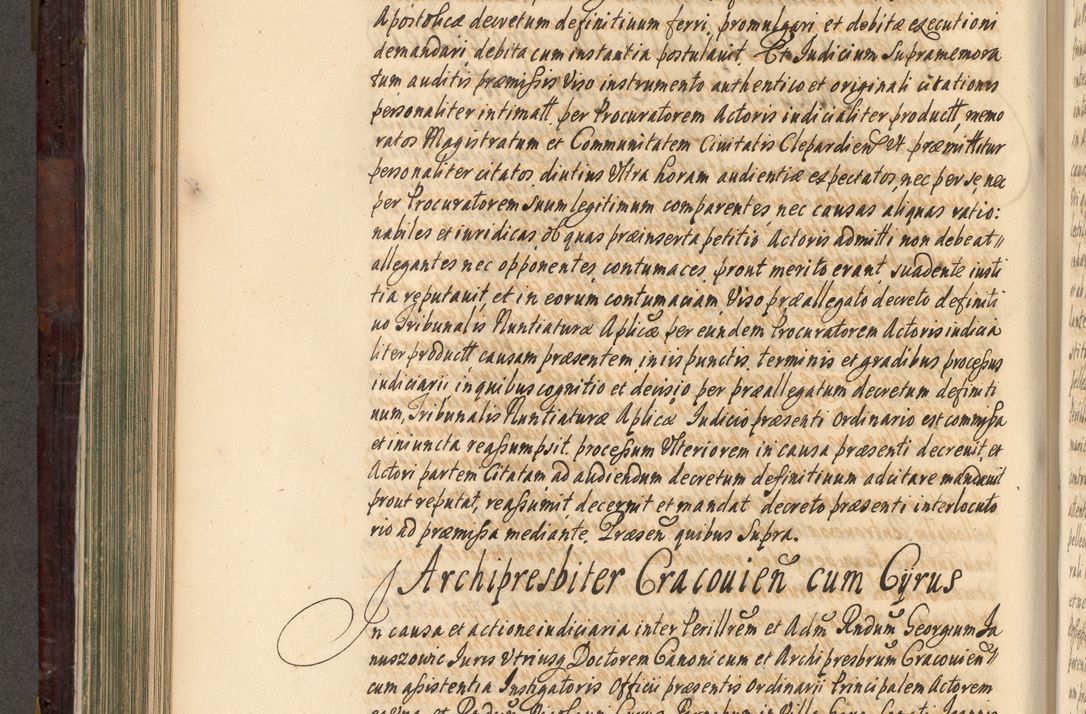 Apostolicæ decretum definitiuum ferri, promulgari, et debitæ executioni
demandari, debita cum instantia postulauit. Et Iudicium Supramemora
tum auditis præmissis Viso instrumento authentico et originali citationis
personaliter intimatt per Procuratorem Actoris iudicialiter productt, memo
ratos Magistratum et Communitatem Ciuitatis Clepardien Vt præmittitur
personaliter citatos diutius Vltra horam audientiæ expectatos, nec per se, nec
per Procuratorem Suum legitimum comparentes nec causas aliquas ratio:
nabiles et iuridicas ob quas præinserta petitio Actoris admitti non debeat
allegantes nec opponentes, contumaces, prout merito erant, Suadente iusti
tia reputauit, et in eorum contumaciam, Viso præallegato decreto definiti
uo Tribunalis Nuntiaturæ Aplicæ per eundem Procuratorem Actoris iudicia
liter productt causam præsentem in iis punctis, terminis et gradibus processus
iudiciarii in quibus cognitio et decisio per præallegatum decretum definiti
uum, Tribunalis Nuntiaturæ Aplicæ Iudicio præsenti Ordinario est commissa
et iniuncta reassumpsit, processum Vlteriorem in causa præsenti decreuit, et
Actori partem Citatam ad audiendum decretum definitiuum adcitare mandauit
prout reputat, reassumit, decernit et mandat decreto præsenti interlocuto
rio ad præmissa mediante. Præsen quibus Supra.
Archipresbiter Cracouien cum Cyrus
In causa et actione iudiciaria inter Perillrem et Adm Rndum Georgium Ja
nuszowic Juris Vtriusq Doctorem Canonicum et Archipresbrum Cracouien
cum assistentia Instigatoris Officii præsentis Ordinarii Principalem Actorem